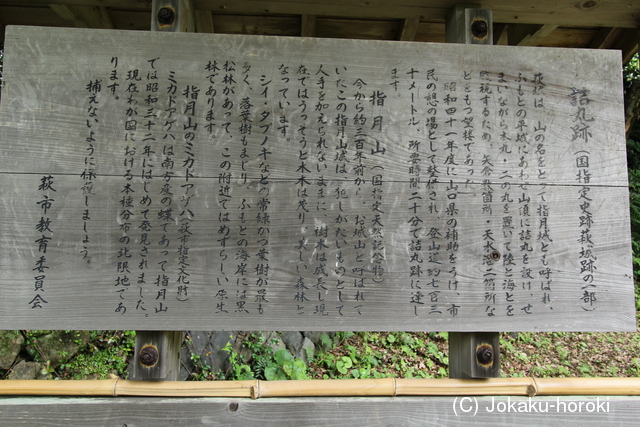 詰丸跡(国指定史跡萩城跡の一部)
萩城は、山の名をとって指月城とも呼ばれ、
ふもとの平城にあわせ山頂に詰丸を設け、せ
まいながら本丸・二の丸を置いて陸と海とを
監視するため、矢倉数箇所、天水溜二箇所な
どをもつ望楼であった。
昭和四十一年度に山口県の補助をうけ、市
民の憩の場として整備され、登山道約七百三
十メートル、所要時間二十分で詰丸跡に達し
ます。
指月山(国指定天然記念物)
今から約三百年前から、お城山と呼ばれて
いたこの指月山城は、犯しがたいものとして
人手を加えられないままに、樹木は成長し現
在ではうっそうと木木は茂り、美しい森林と
なっています。
シイ・タブノキなどの常緑かつ葉樹が最も
多く、落葉樹もまじり、ふもとの海岸には黒
松林があって、この附近ではめずらしい原生
林であります。
指月山のミカドアゲハ(萩市指定文化財)
ミカドアゲハは南方産の蝶であって指月山
では昭和三十二年にはじめて発見されました。
現在わが国における本種分布の北限地であ
ります。
捕えないように保護しましょう。
萩市教育委員会
(C) Jokaku-horoki